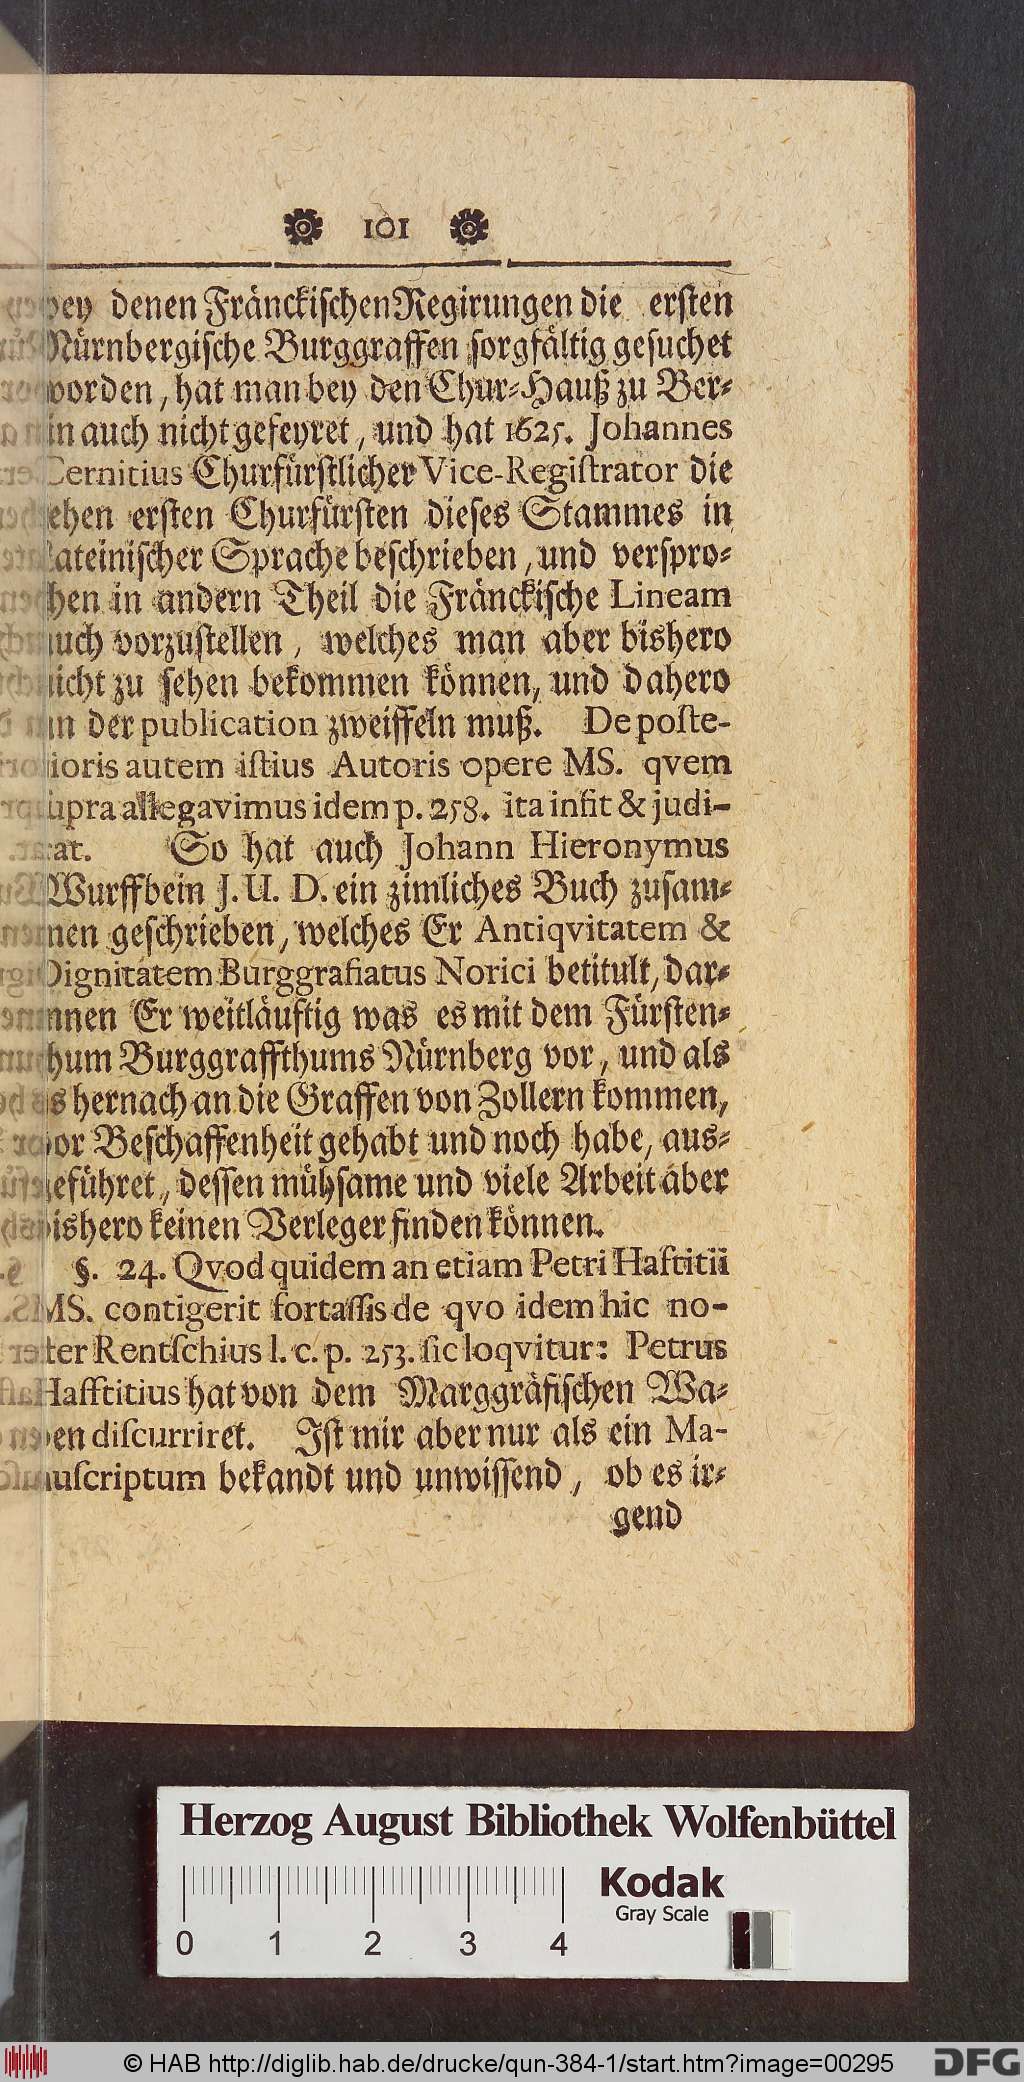 101
bey denen Fränckischen Regirungen die ersten
Nürnbergische Burggraffen sorgfältig gesuchet
worden, hat man bey den Chur-Hauß zu Ber-
lin auch nicht gefeyret, und hat 1625. Johannes
Cernitius Churfürstlicher Vice-Registrator die
zehen ersten Churfürsten dieses Stammes in
Lateinischer Sprache beschrieben, und verspro-
chen in andern Theil die Fränckische Lineam
auch vorzustellen, welches man aber bishero
nicht zu sehen bekommen können, und dahero
an der publication zweiffeln muß. De poste-
rioris autem istius Autoris opere MS. qvem
supra allegavimus idem p. 258. ita infit & judi-
cat. So hat auch Johann Hieronymus
Wurffbein J. U. D. ein zimliches Buch zusam-
men geschrieben, welches Er Antiqvitatem &
Dignitatem Burggrafiatus Norici betitult, dar-
innen Er weitläuftig was es mit dem Fürsten-
thum Burggraffthums Nürnberg vor, und als
es hernach an die Graffen von Zollern kommen,
vor Beschaffenheit gehabt und noch habe, aus-
geführet, dessen mühsame und viele Arbeit aber
bishero keinen Verleger finden können.
§. 24. Qvod quidem an etiam Petri Haftitii
MS. contigerit fortassis de qvo idem hic no-
ster Rentschius l. c. p. 253. sic loqvitur: Petrus
Hafftitius hat von dem Marggräfischen Wa-
pen discurriret. Ist mir aber nur als ein Ma-
nuscriptum bekandt und unwissend, ob es ir-
gend
Herzog August Bibliothek Wolfenbüttel
Kodak
Gray Scale
0 1 2 3 4
© HAB http://diglib.hab.de/drucke/qun-384-1/start.htm?image=00295
DFG